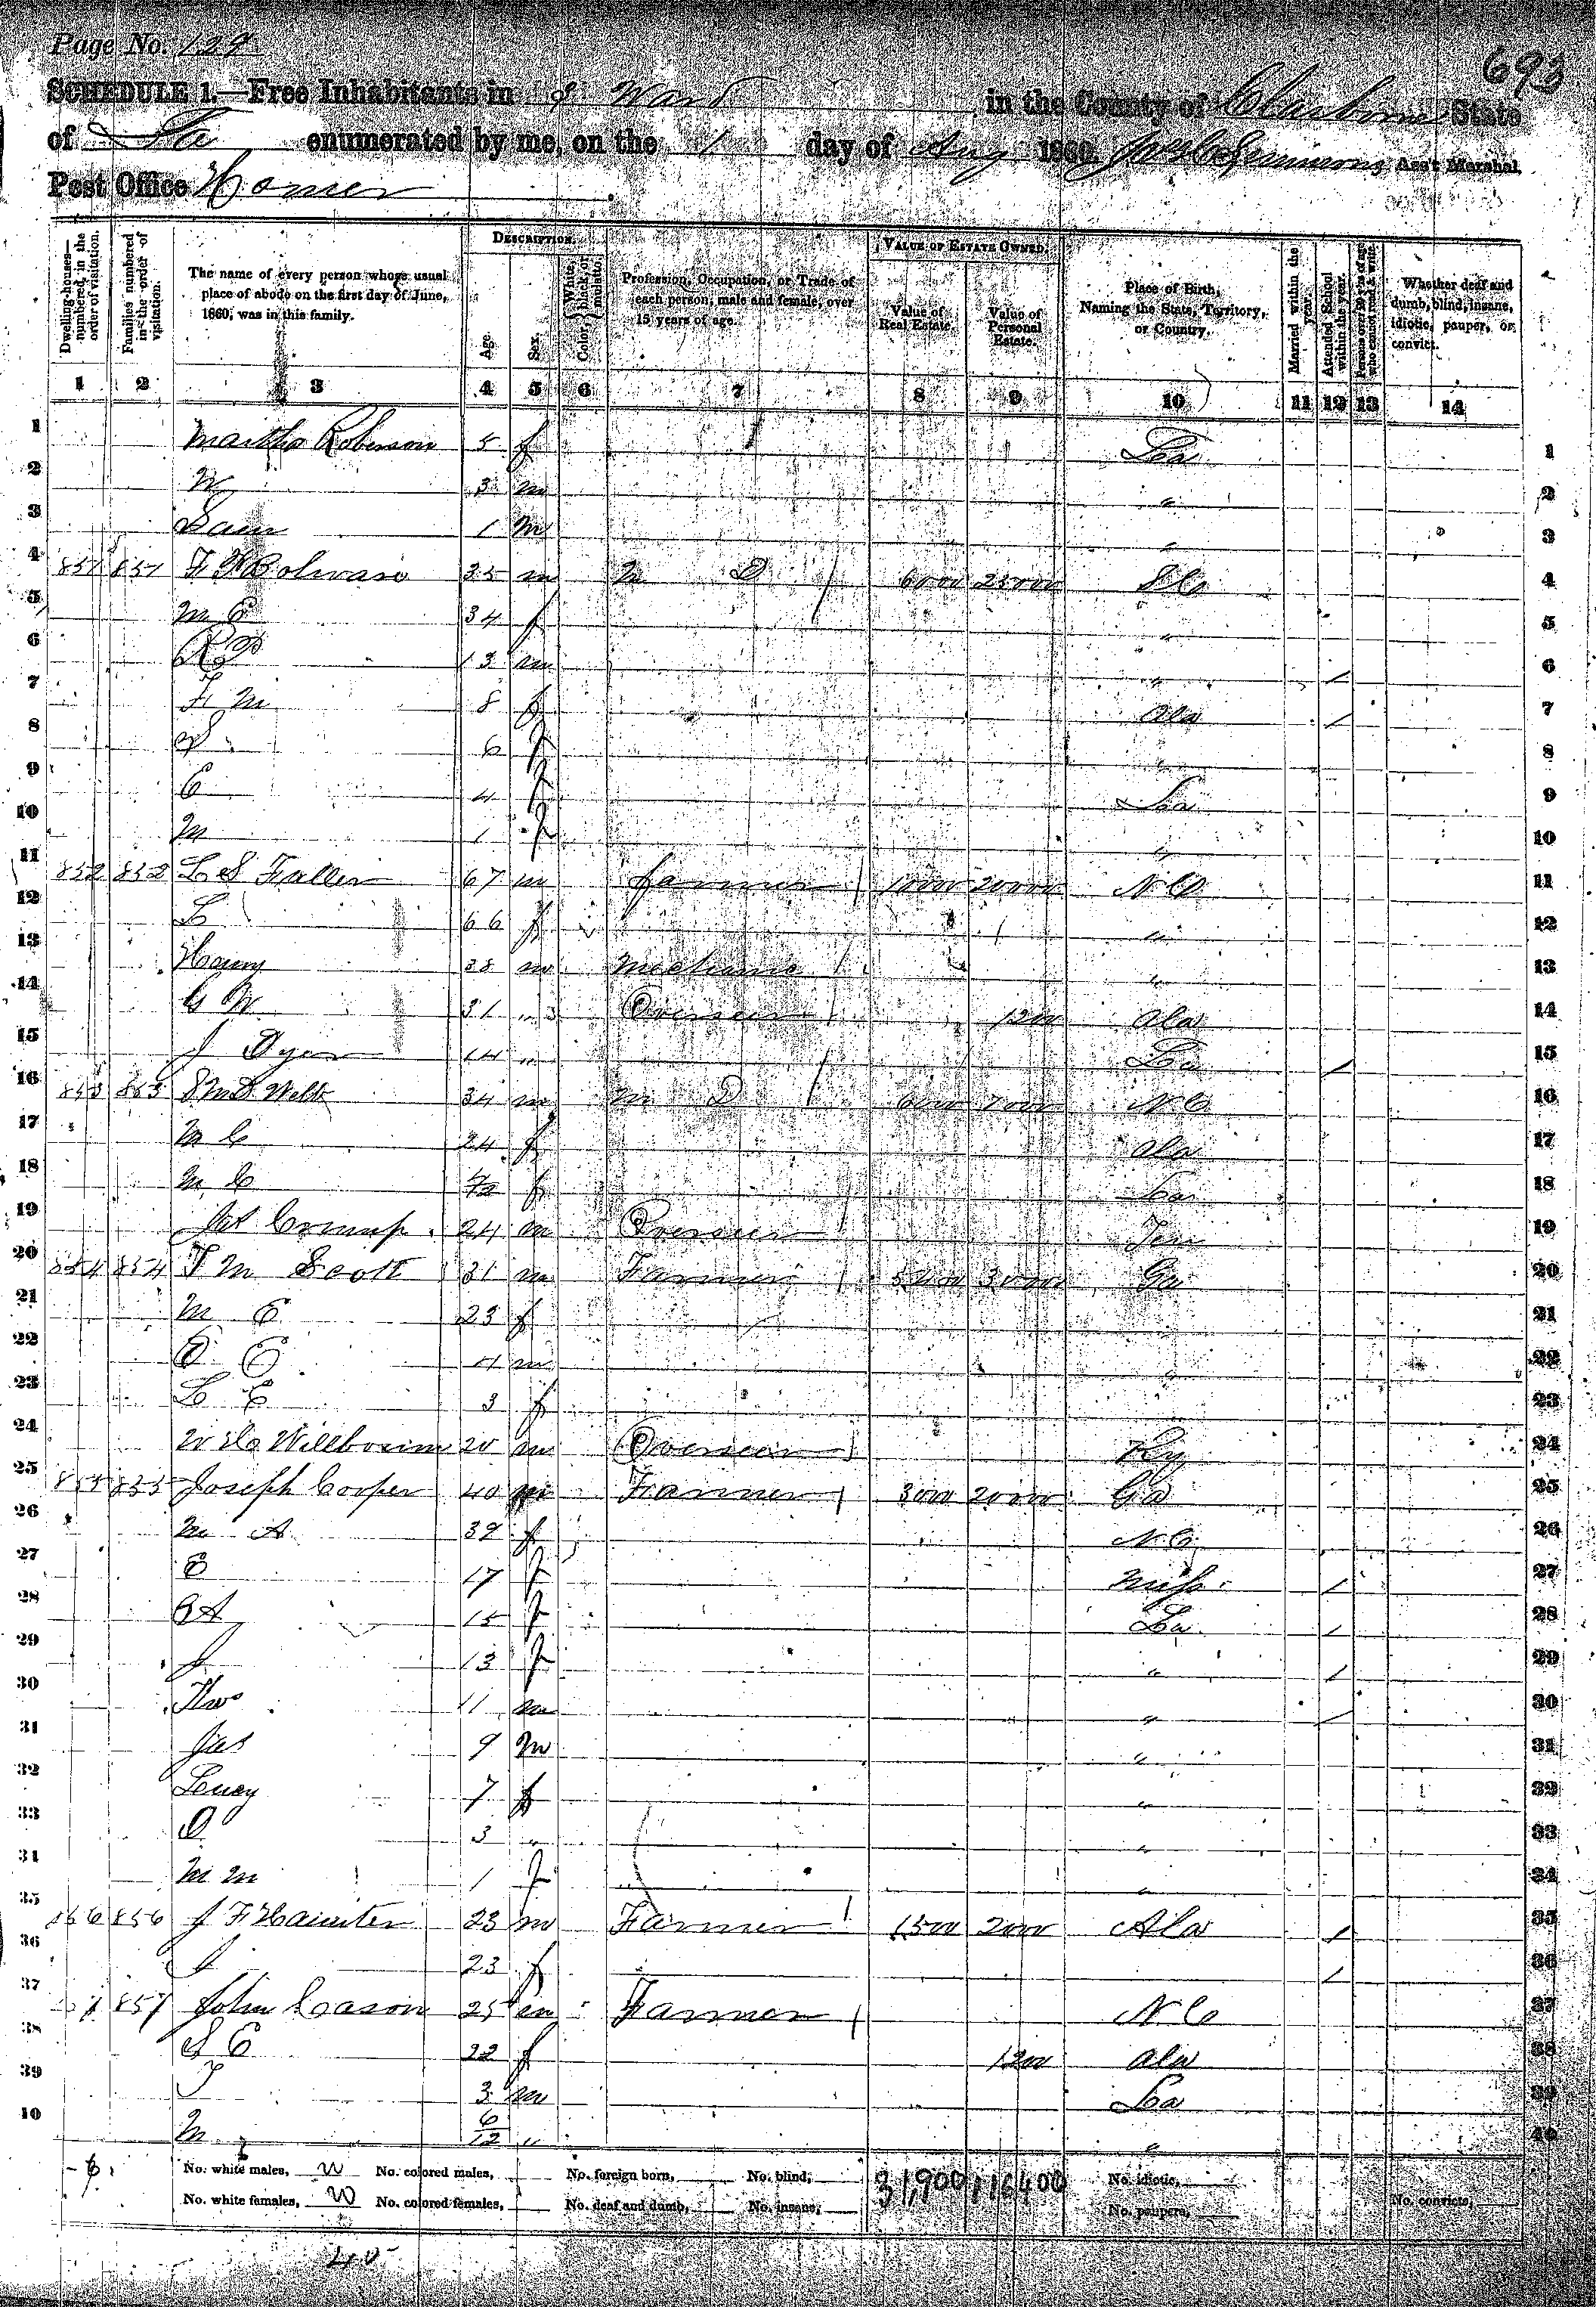 Page No. 129
693
SCHEDULE 1.—Free Inhabitants in Ward in the County of Claiborne State
of La enumerated by me, on the 1 day of Aug 1860. Ass't Marshal.
Post Office Homer
DESCRIPTION. VALUE OF ESTATE OWNED.
Dwelling-houses—numbered in the order of visitation. Families numbered in the order of visitation. The name of every person whose usual place of abode on the first day of June, 1860, was in this family. Age. Sex. Color, White, black, or mulatto. Profession, Occupation, or Trade of each person, male and female, over 15 years of age. Value of Real Estate. Value of Personal Estate. Place of Birth, Naming the State, Territory, or Country. Married within the year. Attended School within the year. Persons over 20 y'rs of age who cannot read & write. Whether deaf and dumb, blind, insane, idiotic, pauper, or convict.
1 2 3 4 5 6 7 8 9 10 11 12 13 14
1 Martha Roberson 5 f La 1
2 W 3 m " 2
3 Sam 1 m " 3
4 851 851 35 m M D 6000 25000 S C 4
5 M E 34 f " 5
6 13 m " 6
7 F M 8 f Ala 7
8 6 f " 8
9 E 4 f La 9
10 M 1 f " 10
11 852 852 L S Fuller 67 m farmer 10000 20000 N C 11
12 L 66 f " 12
13 Henry 38 m Mechanic " 13
14 G W 31 m Overseer 1200 Ala 14
15 J Dyer 14 m La 15
16 853 853 34 m M D 7000 N C 16
17 M C 24 f Ala 17
18 M C f La 18
19 Crump 24 m Overseer Ten 19
20 854 854 T M Scott 31 m Farmer Ga 20
21 M E 23 f 21
22 E 4 m " 22
23 L E 3 f 23
24 20 m Overseer Ky 24
25 855 855 Joseph Cooper 40 m Farmer 3000 20000 Ga 25
26 M A 39 f N C 26
27 E 17 f Miss 27
28 15 f La 28
29 J 13 f " 29
30 Thos 11 m " 30
31 Jas 9 m " 31
32 Lucy 7 f " 32
33 O 3 " " 33
34 M M 1 f " 34
35 856 856 23 m Farmer 1500 2000 Ala 35
36 J 23 f 36
37 857 John Cason 25 m Farmer N C 37
38 S E 22 f 1200 Ala 38
39 T 3 m La 39
40 M 6/12 " " 40
No. white males, 20 No. colored males, No. foreign born, No. blind, 31,900 116400 No. idiotic,
No. white females, 20 No. colored females, No. deaf and dumb, No. insane, No. paupers, No. convicts,
40